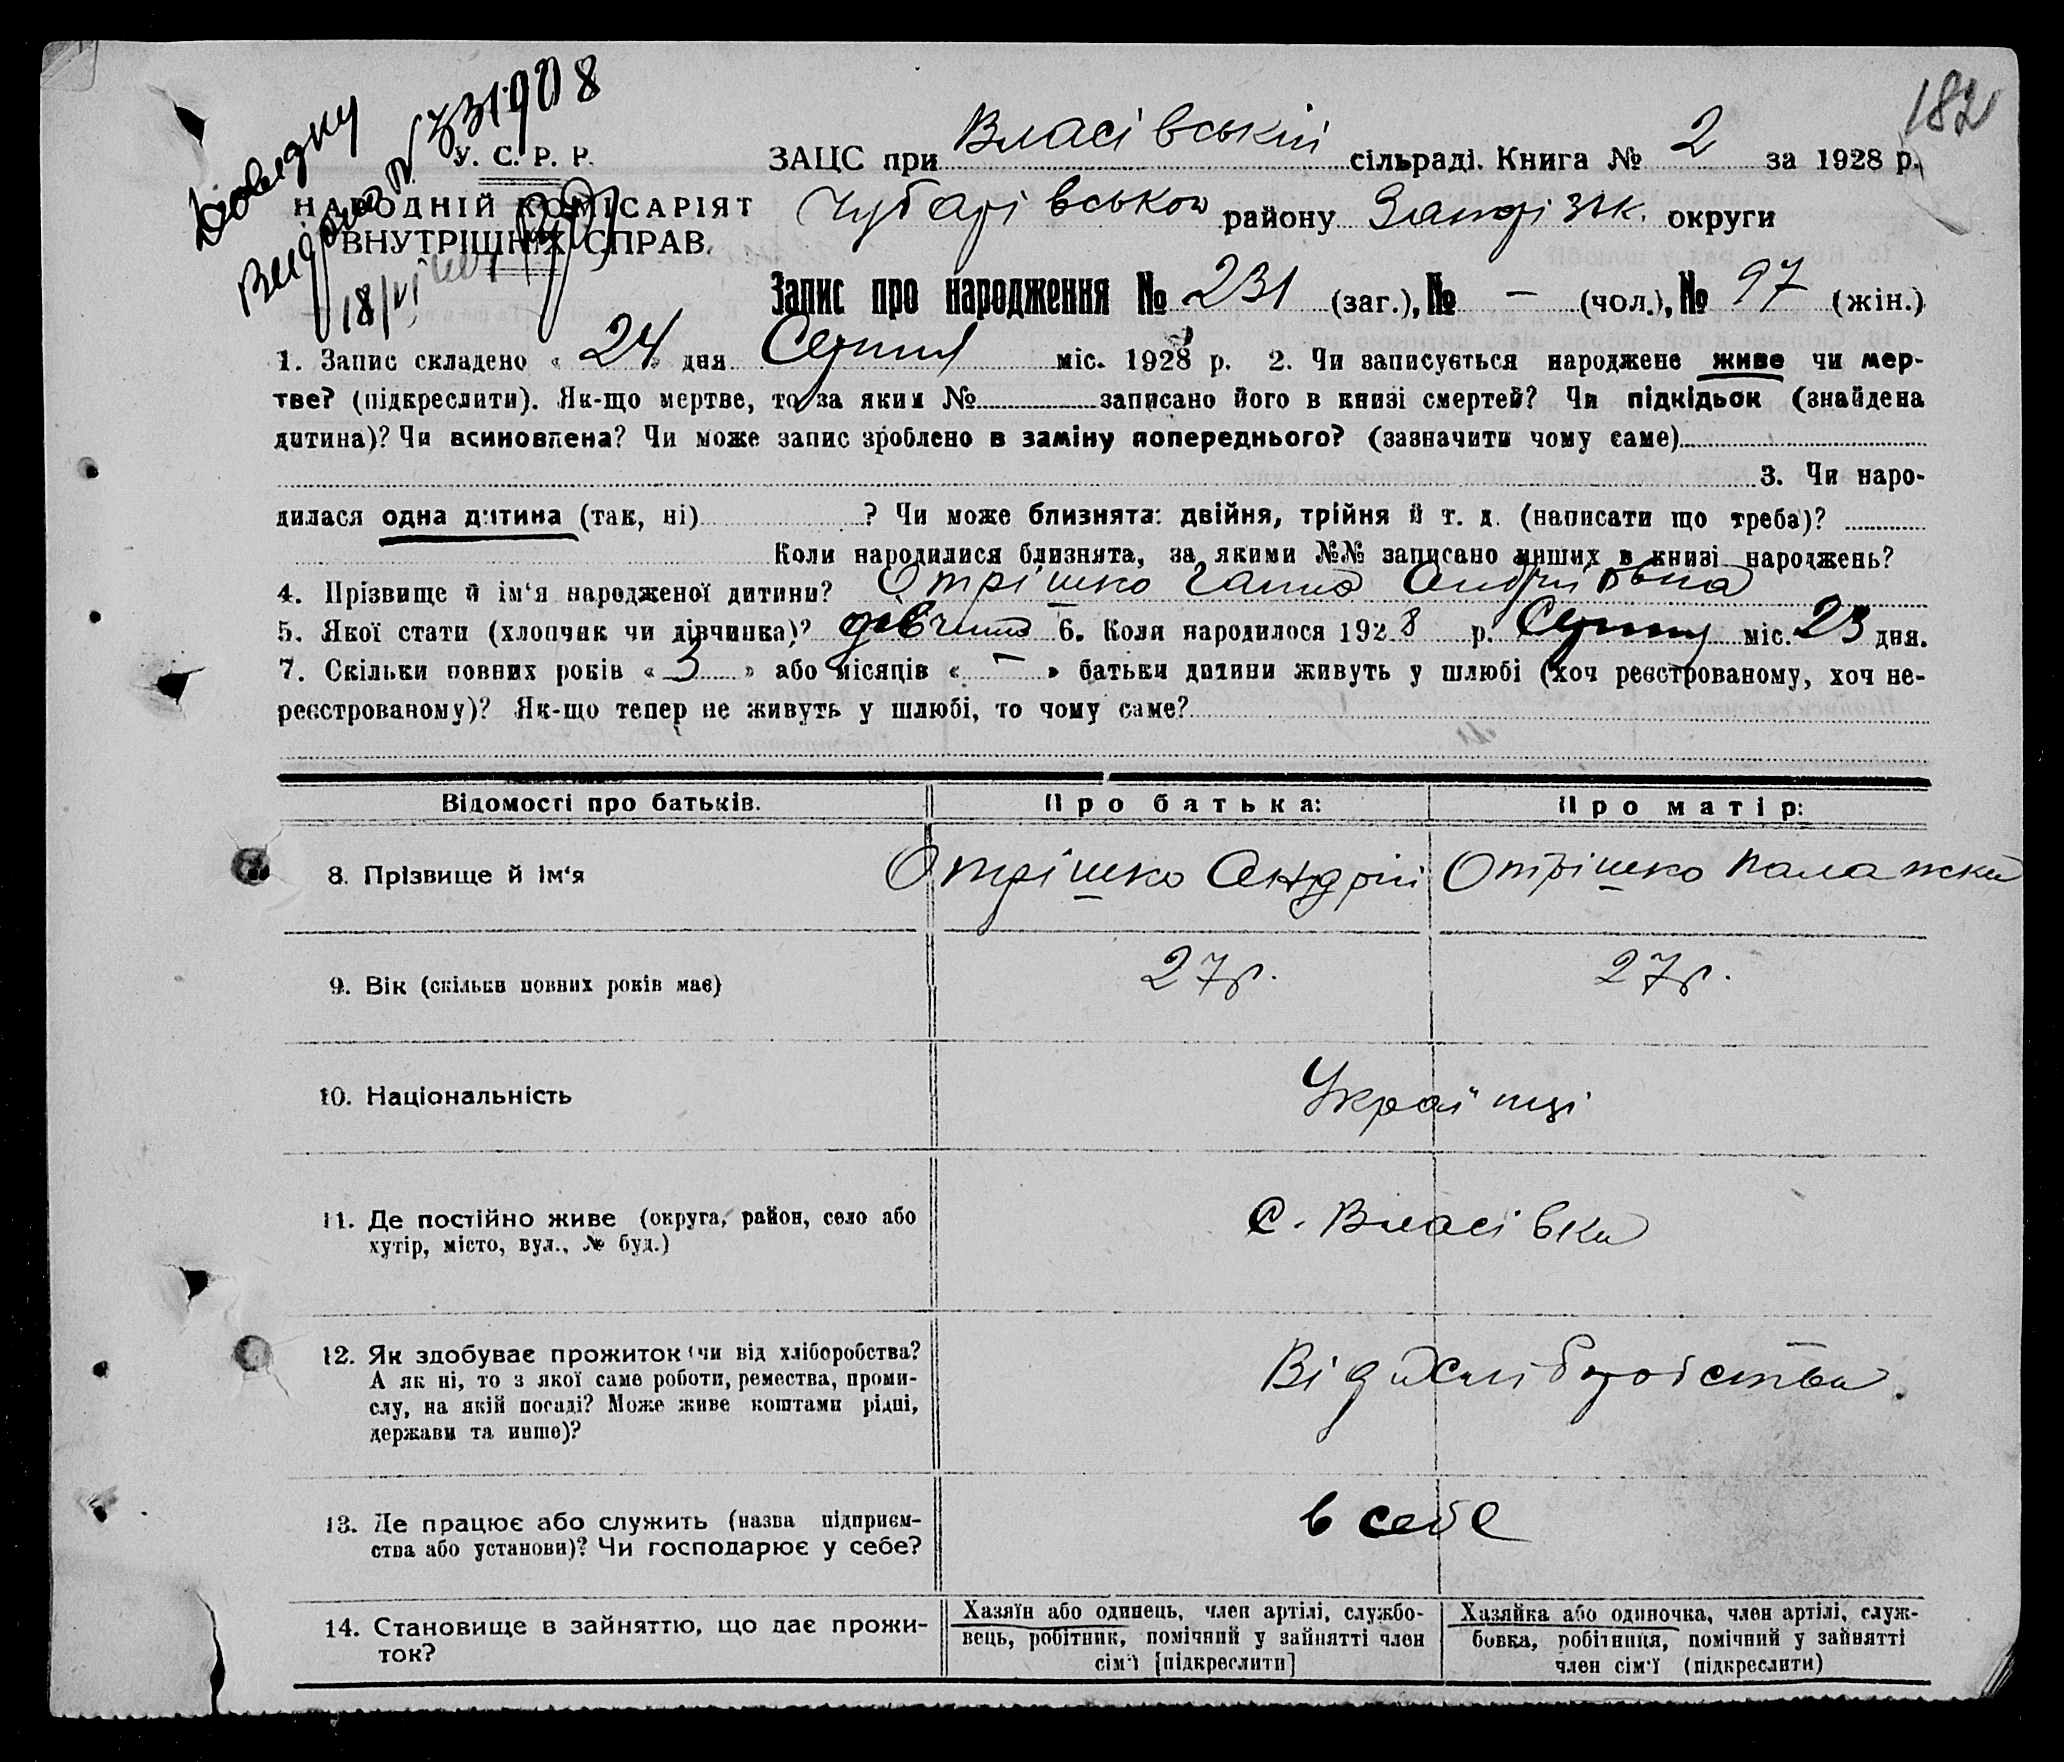 182
Довідку
Видано № 331908
18/VI
У. С. Р. Р.
НАРОДНІЙ КОМІСАРІЯТ
ВНУТРІШНІХ СПРАВ.
ЗАЦС при Власівській сільраді. Книга № 2 за 1928 р.
Чубарівськои району Запоріжк. округи
Запис про народження № 231 (заг.), № — (чол.), № 97 (жін.)
1. Запис складено « 24 » дня Серпня міс. 1928 р. 2. Чи записується народжене живе чи мер-
тве? (підкреслити). Як-що мертве, то за яким № записано його в книзі смертей? Чи підкідьок (знайдена
дитина)? Чи всиновлена? Чи може запис зроблено в заміну попереднього? (зазначити чому саме)
3. Чи наро-
дилася одна дитина (так, ні) ? Чи може близнята: двійня, трійня й т. д. (написати що треба)?
Коли народилися близнята, за якими №№ записано инших в книзі народжень?
4. Прізвище й ім‘я народженої дитини? Отрішко Ганна Андріївна
5. Якої стати (хлопчик чи дівчинка)? дівчина 6. Коли народилося 1928 р. Серпня міс. 23 дня.
7. Скільки повних років « 3 » або місяців « — » батьки дитини живуть у шлюбі (хоч реєстрованому, хоч не-
реєстрованому)? Як-що тепер не живуть у шлюбі, то чому саме?
Відомості про батьків. Про батька: Про матір:
8. Прізвище й ім‘я Отрішко Андрій Отрішко Палажка
9. Вік (скільки повних років має) 27 р. 27 р.
10. Національність Українці
11. Де постійно живе (округа, район, село або
хутір, місто, вул., № буд.) С. Власівка
12. Як здобуває прожиток (чи від хліборобства?
А як ні, то з якої саме роботи, ремества, проми-
слу, на якій посаді? Може живе коштами рідні,
держави та инше)? Від хліборобства.
13. Де працює або служить (назва підприєм-
ства або установи)? Чи господарює у себе? в себе
14. Становище в зайняттю, що дає прожи-
ток?
Хазяїн або одинець, член артілі, службо-
вець, робітник, помічний у зайнятті член
сім'ї [підкреслити]
Хазяйка або одиночка, член артілі, служ-
бовка, робітниця, помічний у зайнятті
член сім'ї (підкреслити)